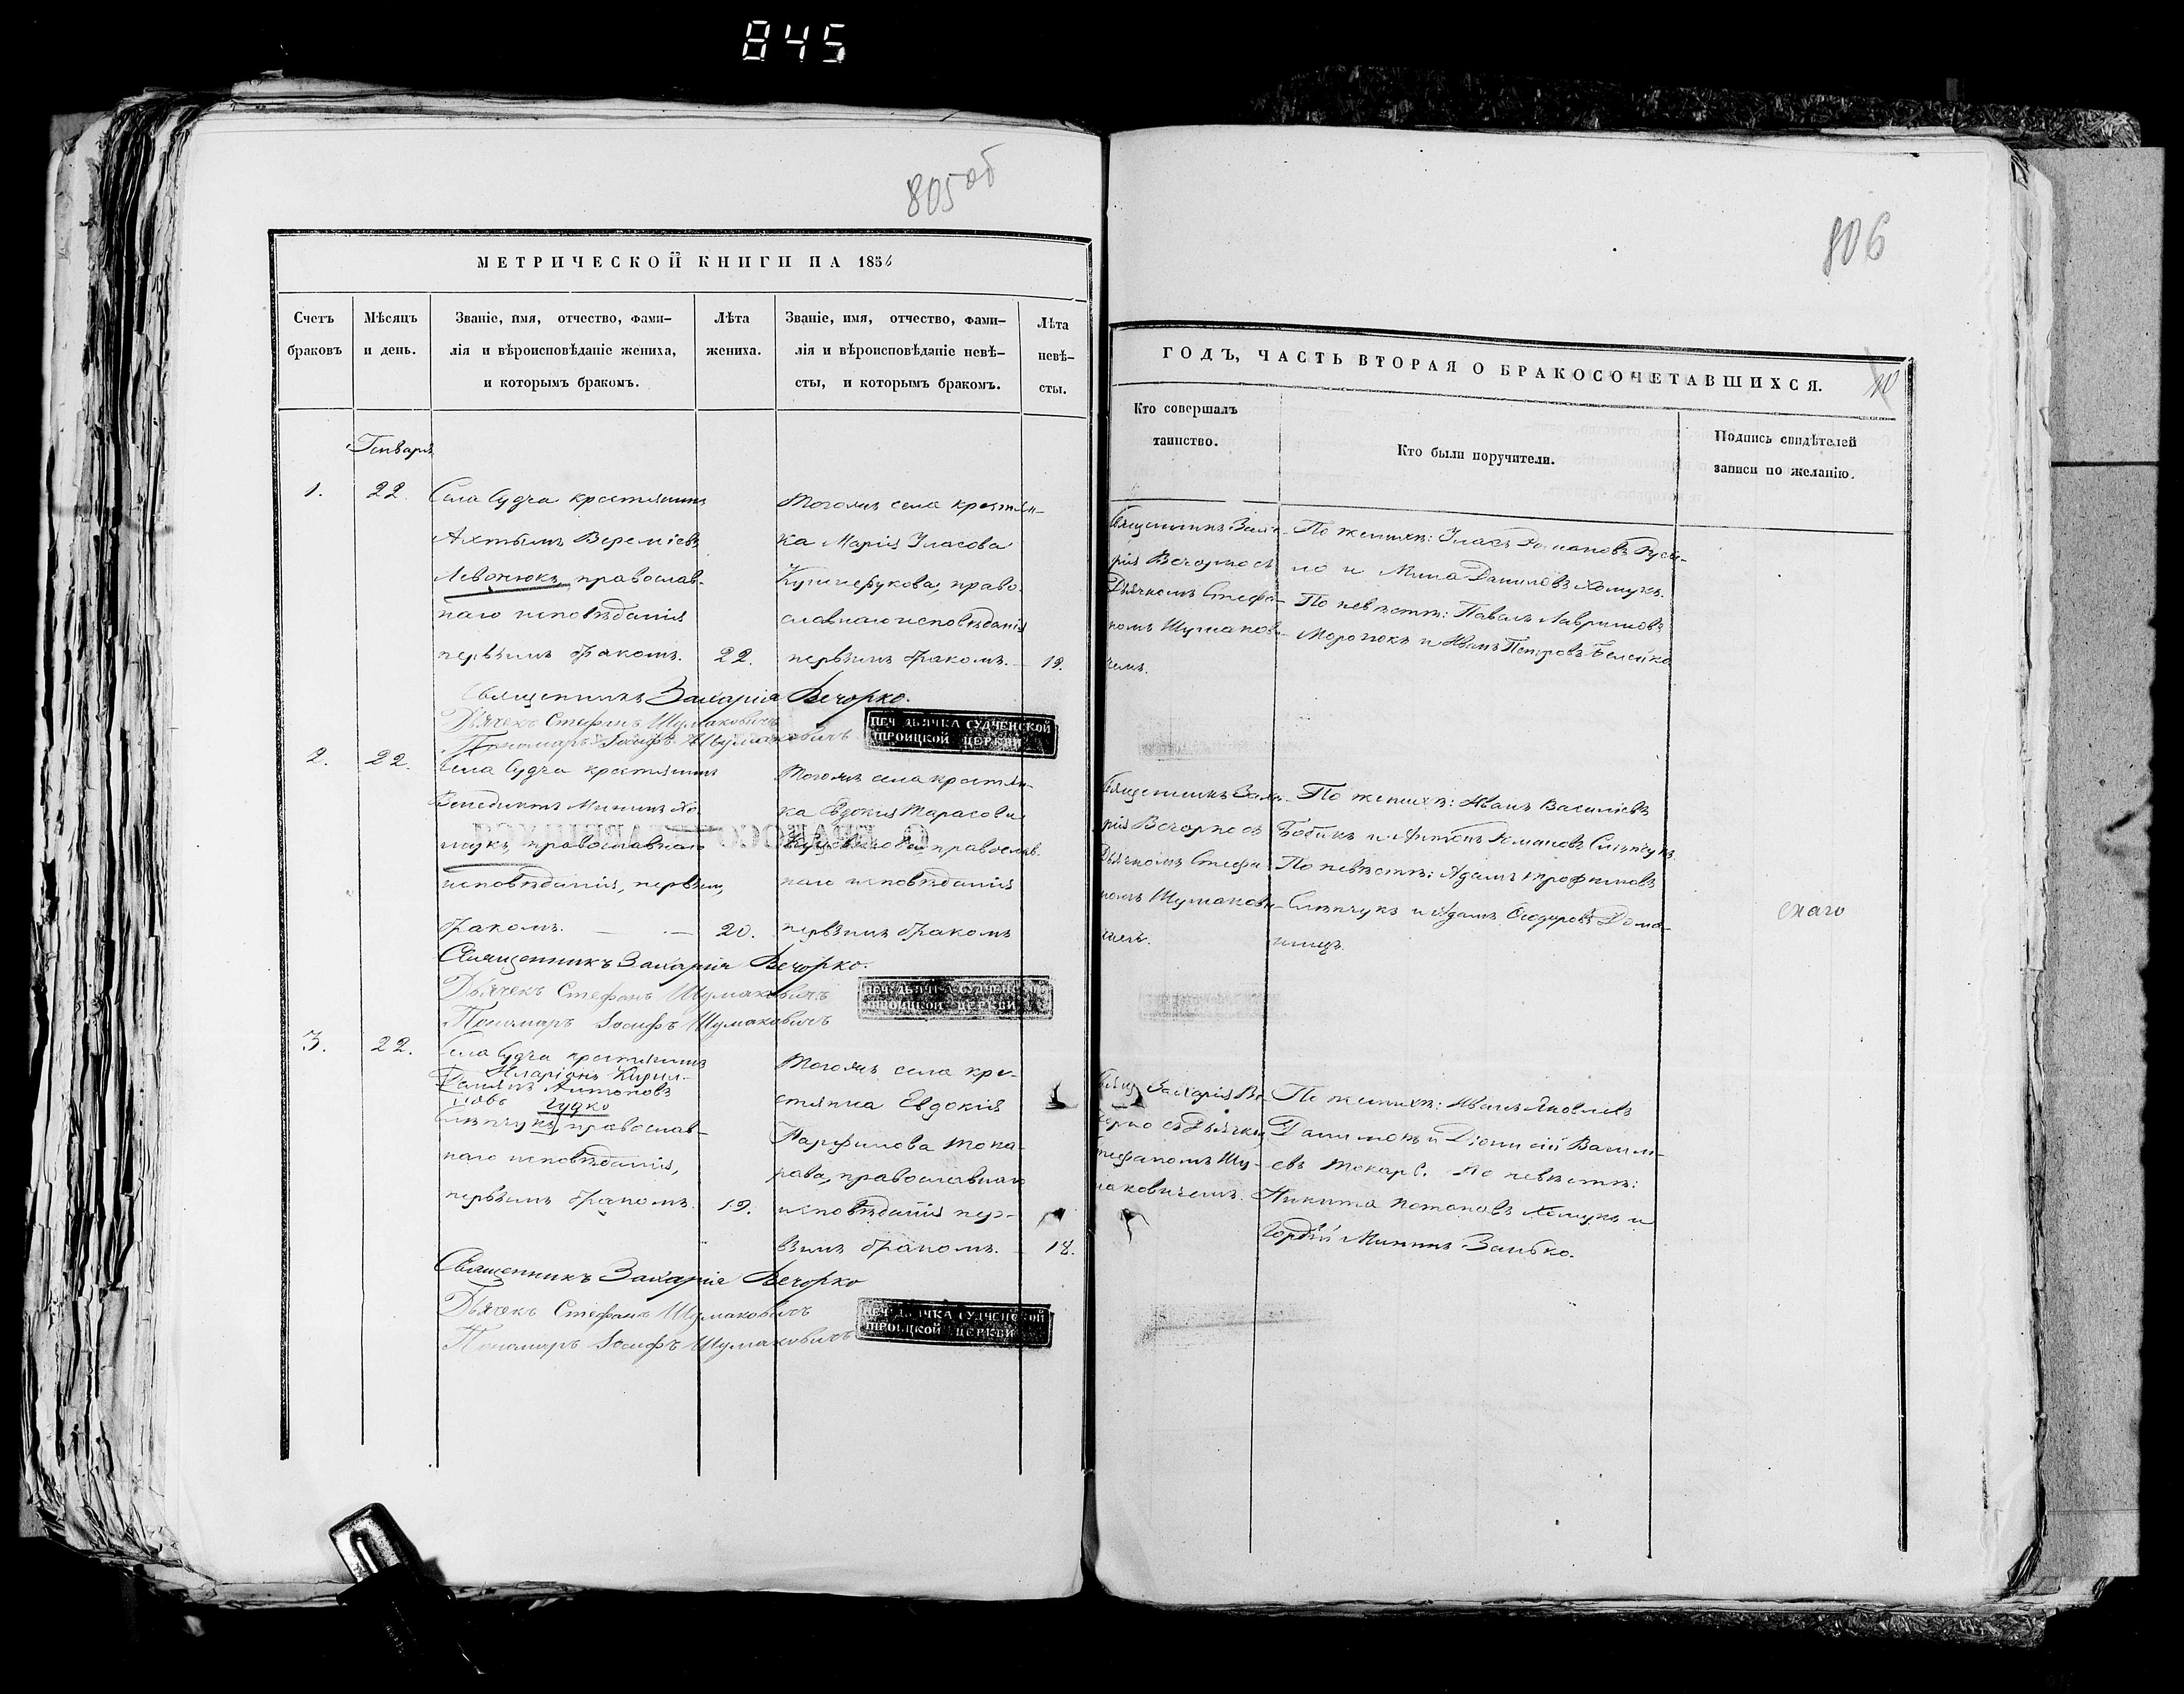 845
805 об
МЕТРИЧЕСКОЙ КНИГИ НА 1854
Счетъ браковъ
Мѣсяцъ и день.
Званіе, имя, отчество, фами-
лія и вѣроисповѣданіе жениха,
и которымъ бракомъ.
Лѣта жениха.
Званіе, имя, отчество, фами-
лія и вѣроисповѣданіе невѣ-
сты, и которымъ бракомъ.
Лѣта невѣ-
сты.
Генварь
1.
22.
Села Судча крестьянинъ
Веремѣевъ
Левонюкъ, православ-
наго исповѣданія
первымъ бракомъ.
22.
Тогожъ села крестьян-
ка Марія Власова
православнаго исповѣданія
первымъ бракомъ.
19.
Священникъ Захарія Вечорко.
Дьячекъ Стефанъ Шумаковичъ
Пономарь Іосифъ Шумаковичъ
ПЕЧ ДЬЯЧКА СУДЧЕНСКОЙ
ТРОИЦКОЙ ЦЕРКВИ
2.
22.
Села Судча крестьянинъ
Венедиктъ Мининъ Хо-
мукъ, православнаго
исповѣданія, первым
бракомъ.
20.
Тогожъ села крестьян-
ка Евдокія Тарасова
православ-
наго исповѣданія
первымъ бракомъ
Священникъ Захарія Вечорко.
Дьячекъ Стефанъ Шумаковичъ
Пономарь Іосифъ Шумаковичъ
ПЕЧ ДЬЯЧКА СУДЧЕНСКОЙ
ТРОИЦКОЙ ЦЕРКВИ
3.
22.
Села Судча крестьянинъ
Иларіонъ Кирил-
Даміанъ Антоновъ
ловъ Гудко
Слѣпчукъ, православ-
наго исповѣданія,
первымъ бракомъ.
19.
Тогожъ села кре-
стьянка Евдокія
Парфинова Тока-
рава, православнаго
исповѣданія пер-
вымъ бракомъ.
18.
Священникъ Захарія Вечорко
Дьячекъ Стефанъ Шумаковичъ
Пономарь Іосифъ Шумаковичъ
ПЕЧ ДЬЯЧКА СУДЧЕНСКОЙ
ТРОИЦКОЙ ЦЕРКВИ
806
ГОДЪ, ЧАСТЬ ВТОРАЯ О БРАКОСОЧЕТАВШИХСЯ.
10
Кто совершалъ
таинство.
Кто были поручители.
Подпись свидѣтелей
записи по желанію.
Священникъ Заха-
рія Вечорко съ
Дьячкомъ Стефа-
номъ Шумакови-
чемъ.
По женихѣ: Власъ Романовъ
и Мина Даниловъ Хомукъ.
По невѣстѣ: Павелъ Лавриновъ
и Иванъ Петровъ
Священникъ Заха-
рія Вечорко съ
Дьячкомъ Стефа-
номъ Шумакови-
чемъ.
По женихѣ: Иванъ Василіевъ
Бобикъ и Антонъ Романовъ Слѣпчукъ
По невѣстѣ: Адамъ Трофимовъ
Слѣпчукъ и Адамъ Ѳеодоровъ
скаго
Свящ. Захарія Ве-
чорко съ Дьячком
Стефаномъ Шу-
маковичемъ.
По женихѣ: Иванъ Яковлевъ
и Діонисій Васили-
евъ Токарь. По невѣстѣ:
Никита Потаповъ Хомукъ и
Гордѣй Мининъ Занько.